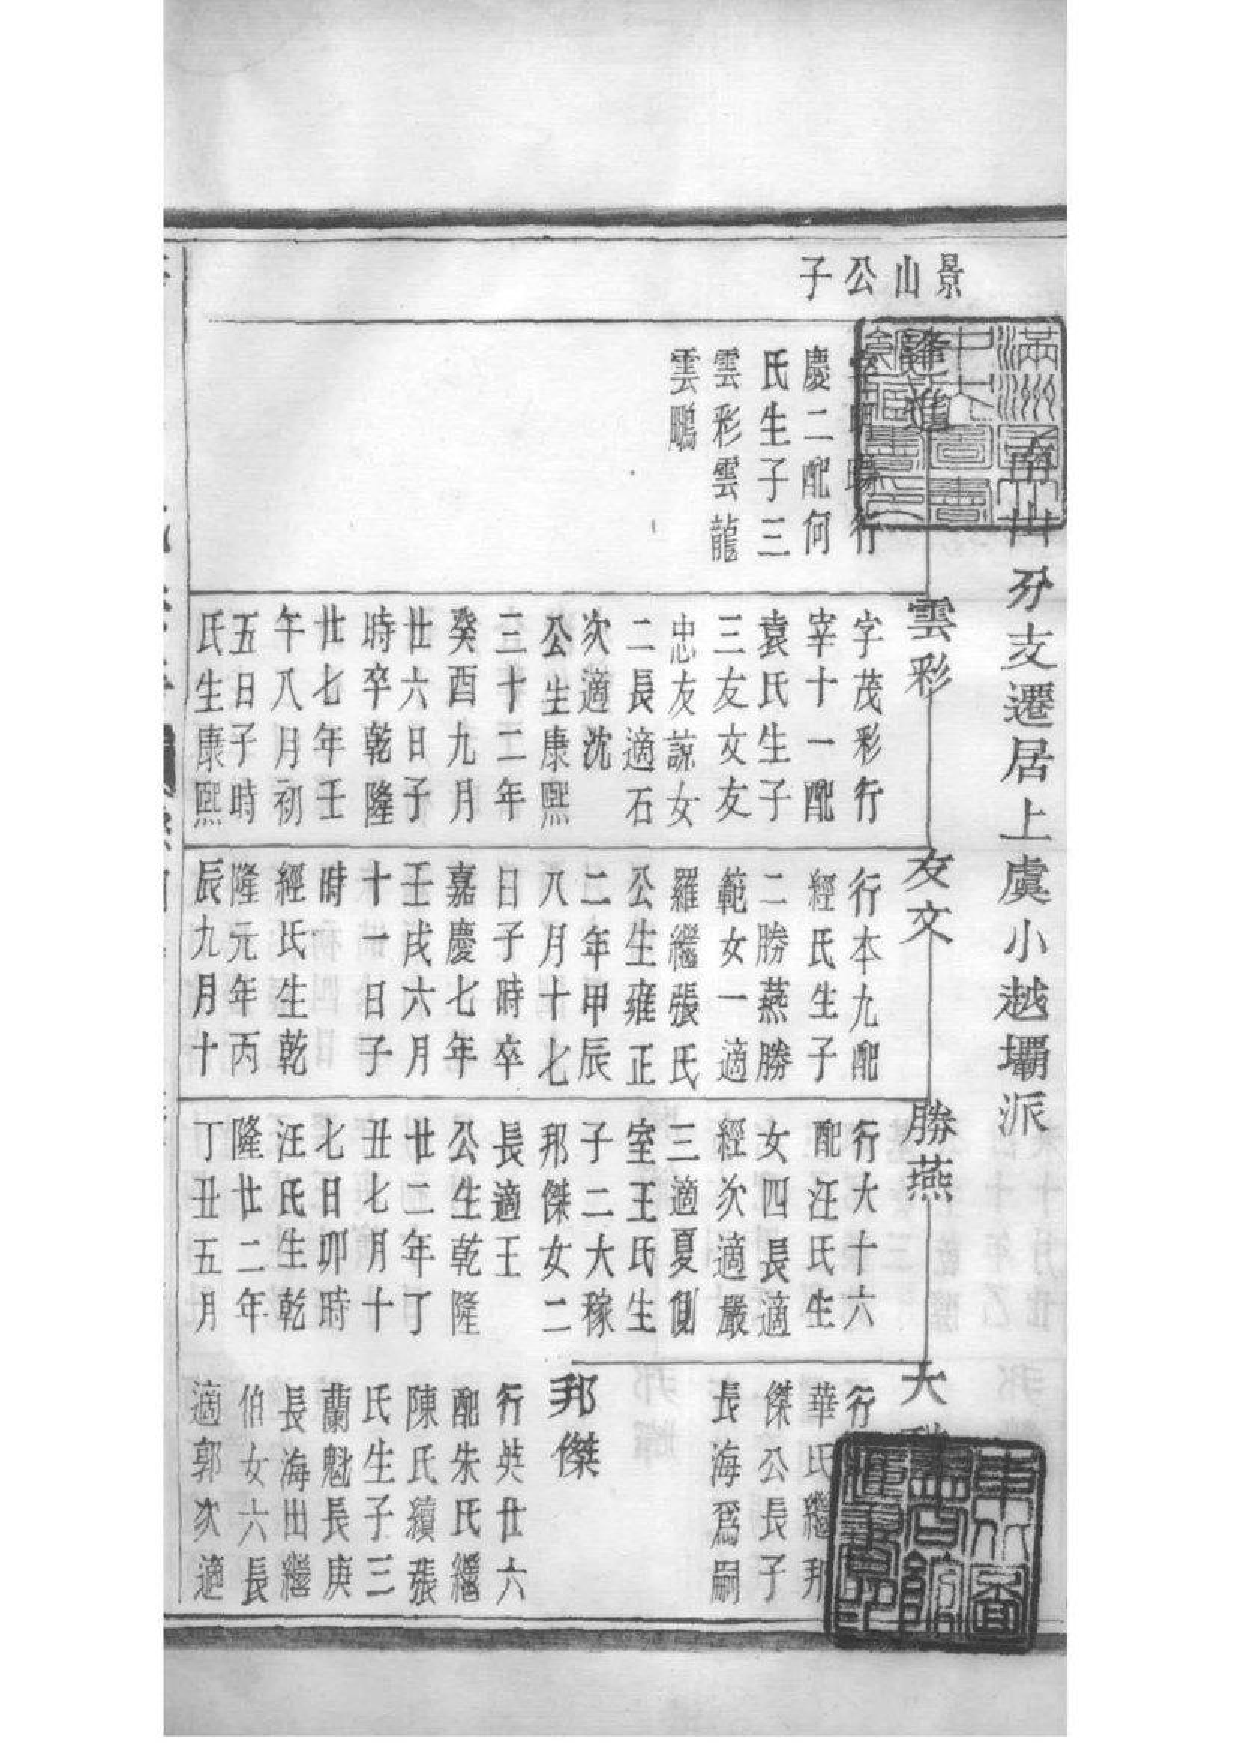 甭卅分支遷居上虞小越壩派
景山公子
隆進
行
慶二配何
氏生子三
雲彩雲龍
雲鵬
雲彩
字茂彩行
宰十一配
袁氏生子
三友文友
忠友諒女
二長適石
次適沈
公生康熙
三十二年
癸酉九月
廿六日子
時卒乾隆
廿七年壬
午八月初
五日子時
氏生康熙
友文
行本九配
經氏生子
二勝燕勝
範女一適
羅繼張氏
公生雍正
二年甲辰
八月十七
日子時卒
嘉慶七年
壬戌六月
十一日子
時
經氏生乾
隆元年丙
辰九月十
勝燕
行大十六
配汪氏生
女四長適
經次適嚴
三適夏側
室王氏生
子二大稼
邦傑女二
長適王
公生乾隆
廿二年丁
丑七月十
七日卯時
汪氏生乾
隆廿二年
丁丑五月
大
行
華氏繼邦
傑公長子
長海爲嗣
邦傑
行英廿六
配朱氏繼
陳氏續張
氏生子三
蘭魁長庚
長海出繼
伯女六長
適郭次適